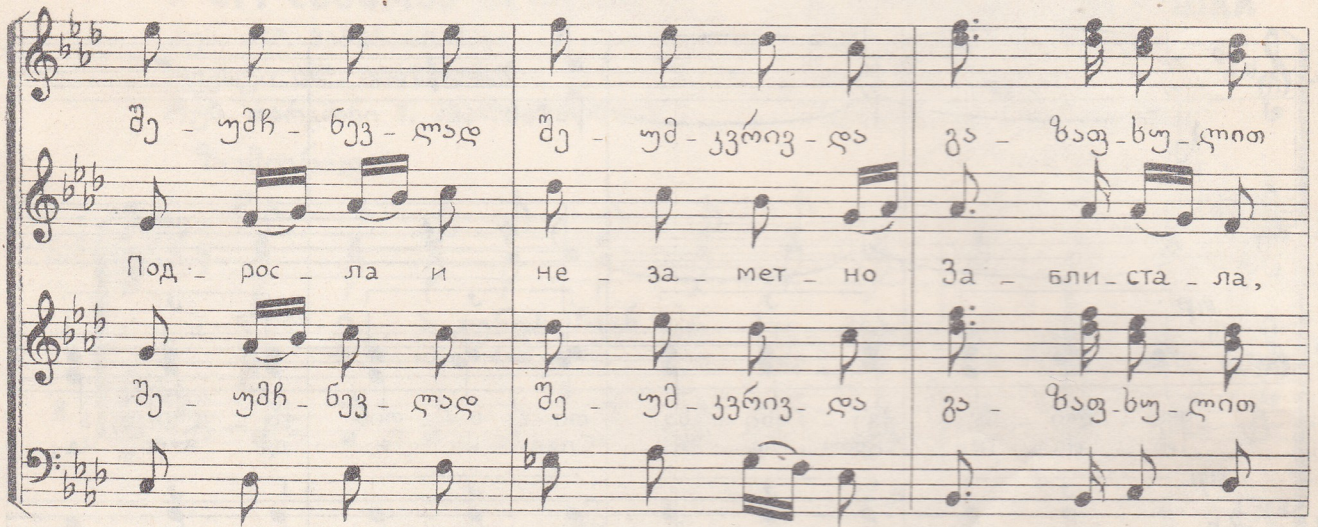 შე - უმჩ - ნევ - ლად შე - უმ - კვრივ - და გა - ზაფ - ხუ - ლით
Под - рос - ла и не - за - мет - но За - бли - ста - ла,
შე - უმჩ - ნევ - ლად შე - უმ - კვრივ - და გა - ზაფ - ხუ - ლით